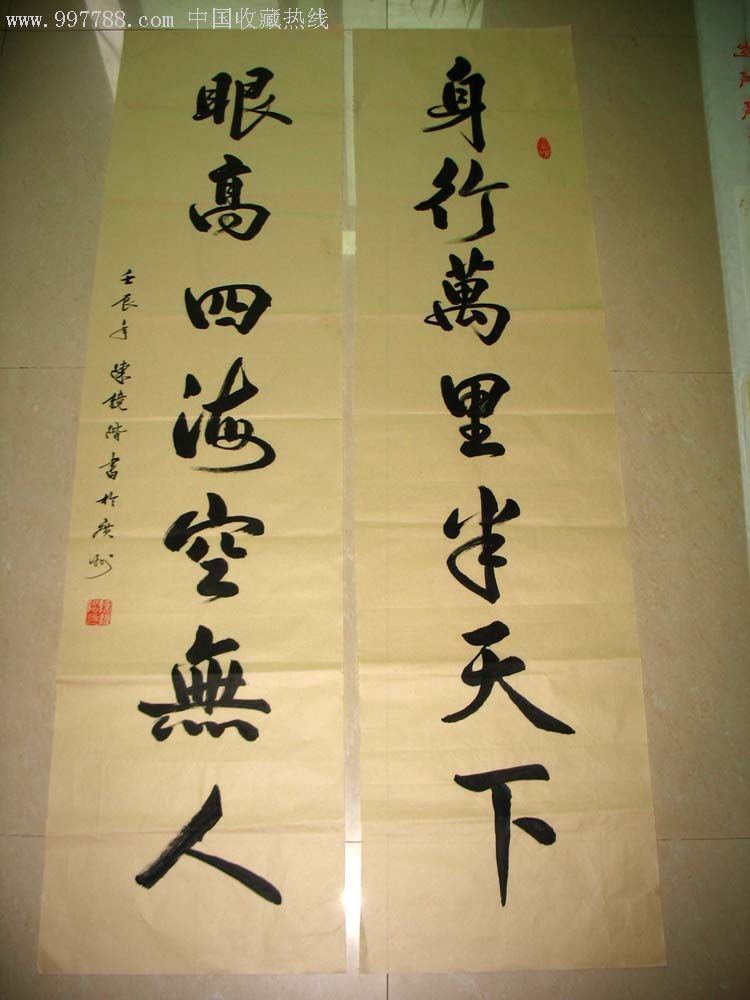 www.997788.com 中国收藏热线
身行萬里半天下
眼高四海空無人
壬辰年 陳鏡階書於廣州